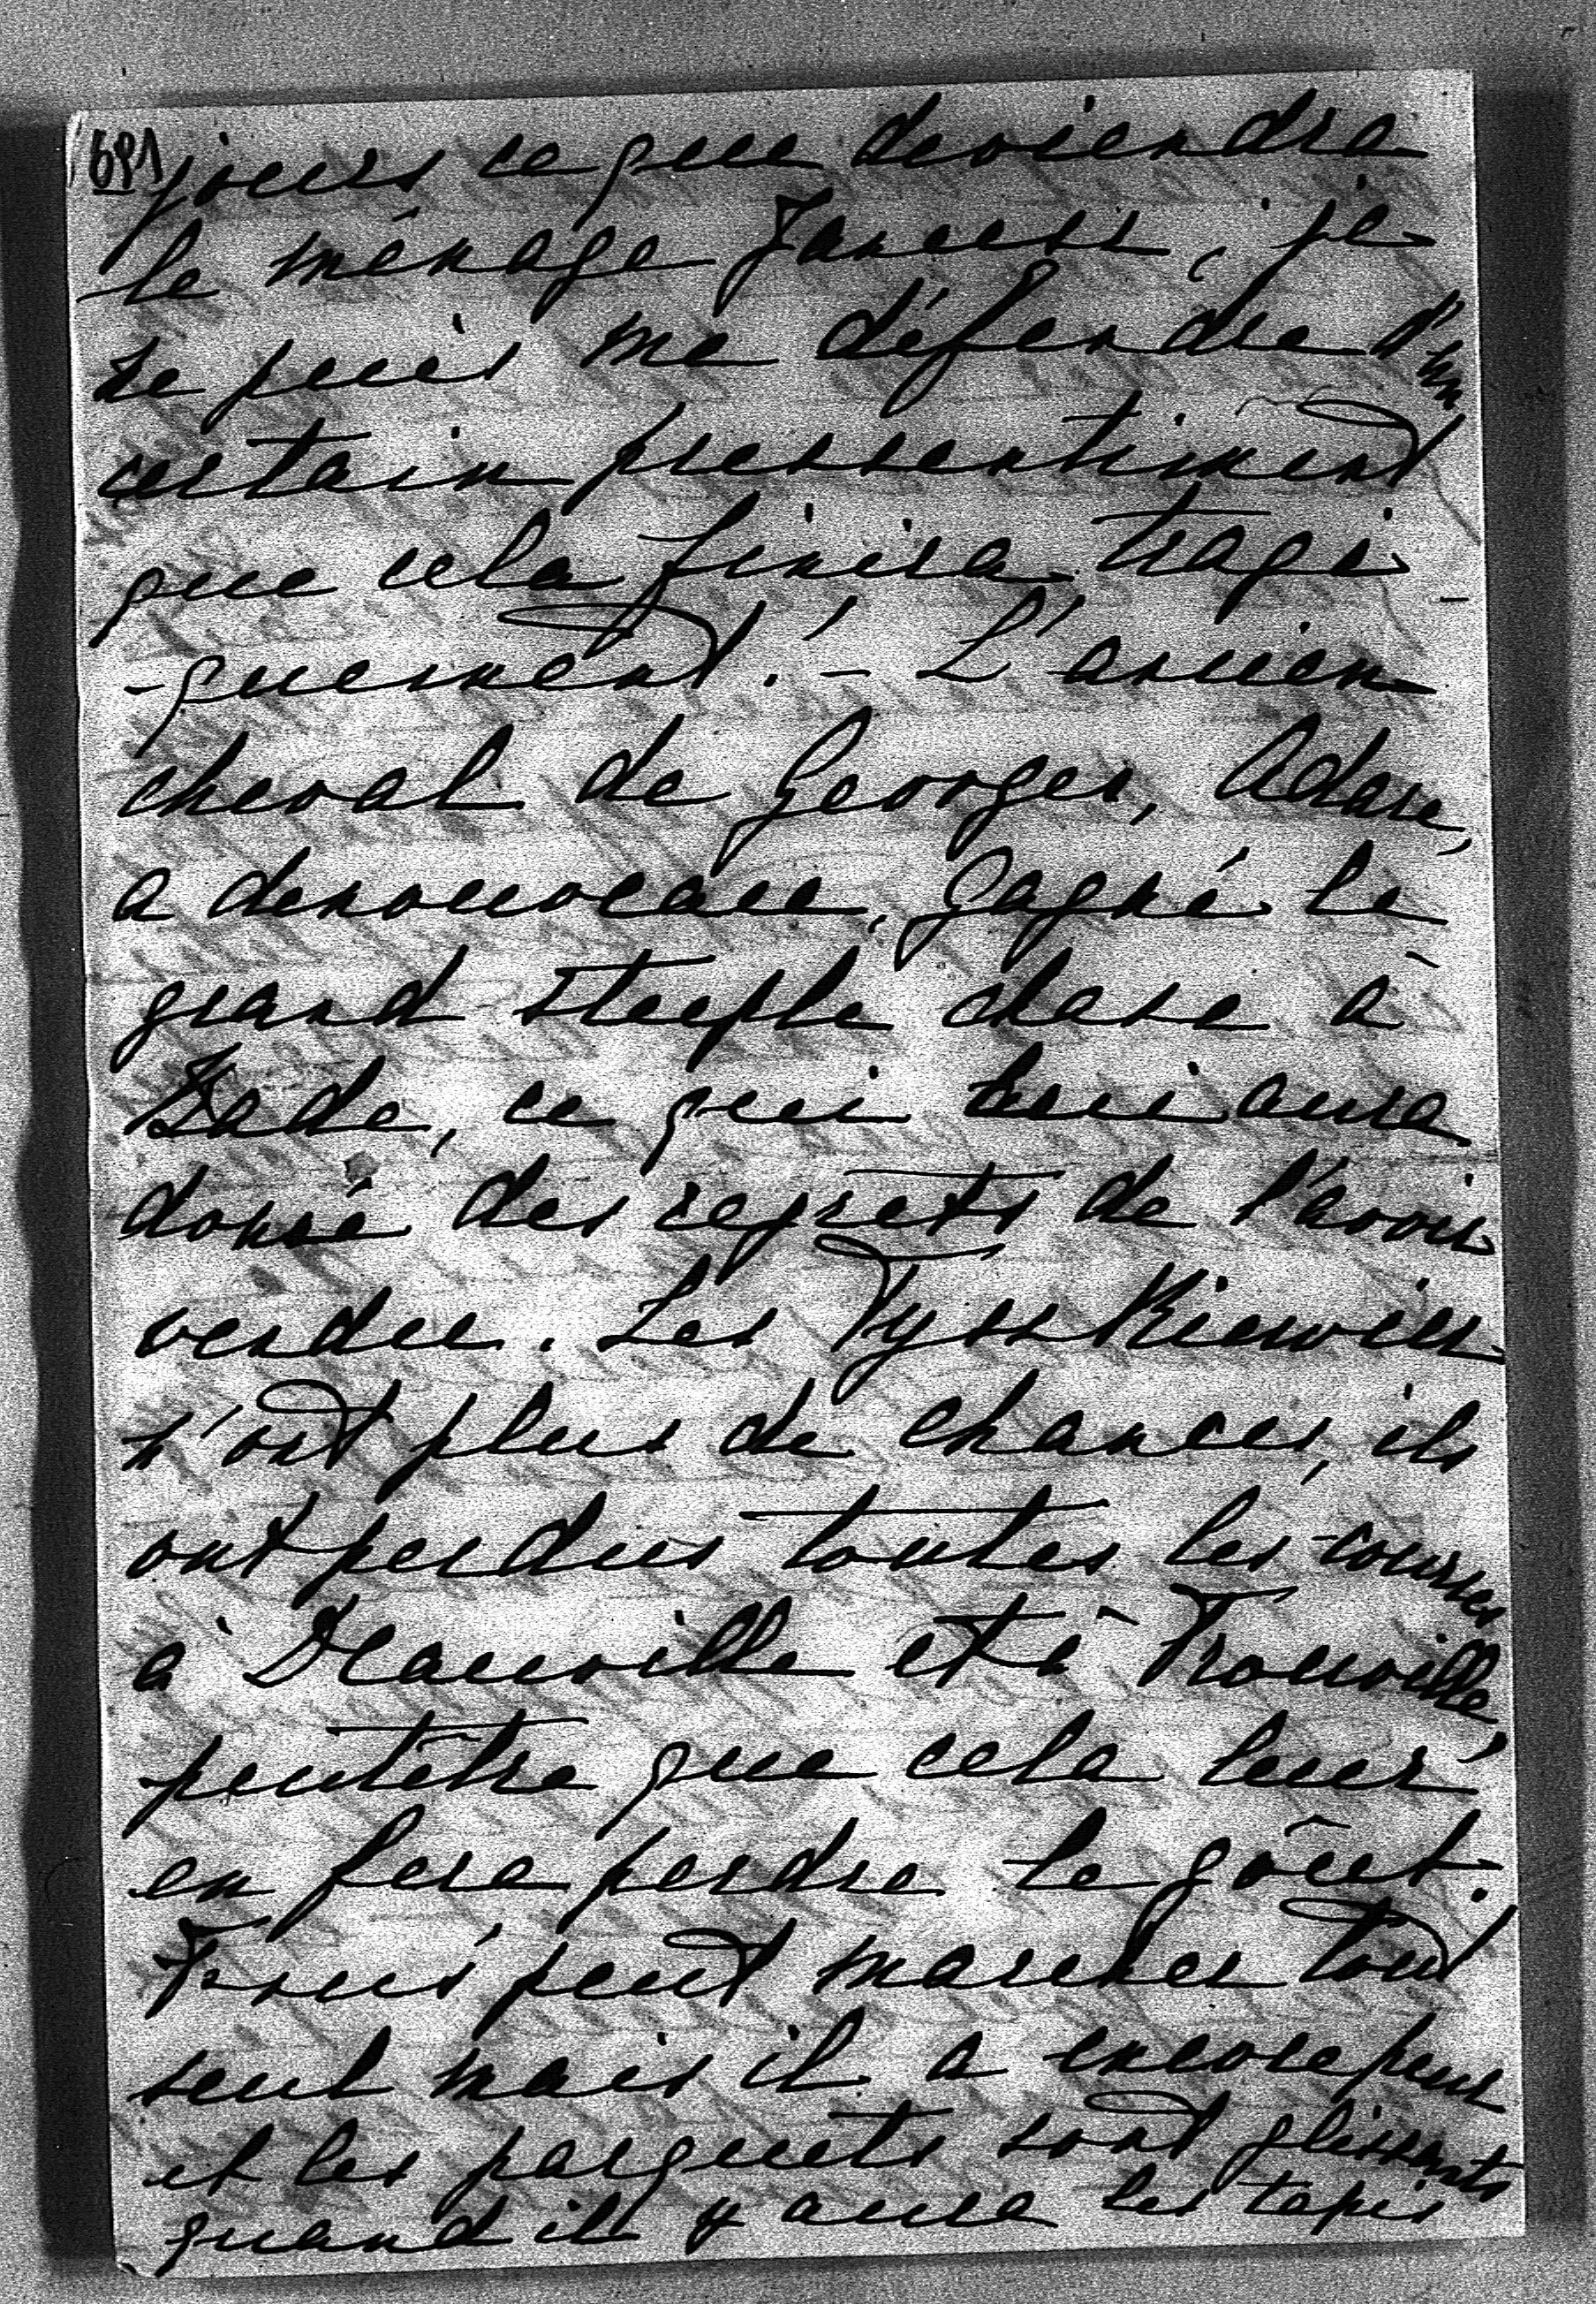 691
jours ce que deviendra
le ménage Jancess, je
ne puis me défendre d'un
certain pressentiment
que cela finira tragi
-quement! - L'ancien
cheval de Georges, Adare,
a denouveau, gagné le
grand steeple chase à
Bade, ce qui lui aura
donné des regrets de l'avoir
vendu. Les Tysskiewicz
n'ont plus de chances, ils
ont perdus toutes les courses
à Deauville et à Trouville,
peutêtre que cela leur
en fera perdre le goût.
peut marcher tout
seul mais il a encore peur
et les parquets sont glissants
quand il y aura les tapis